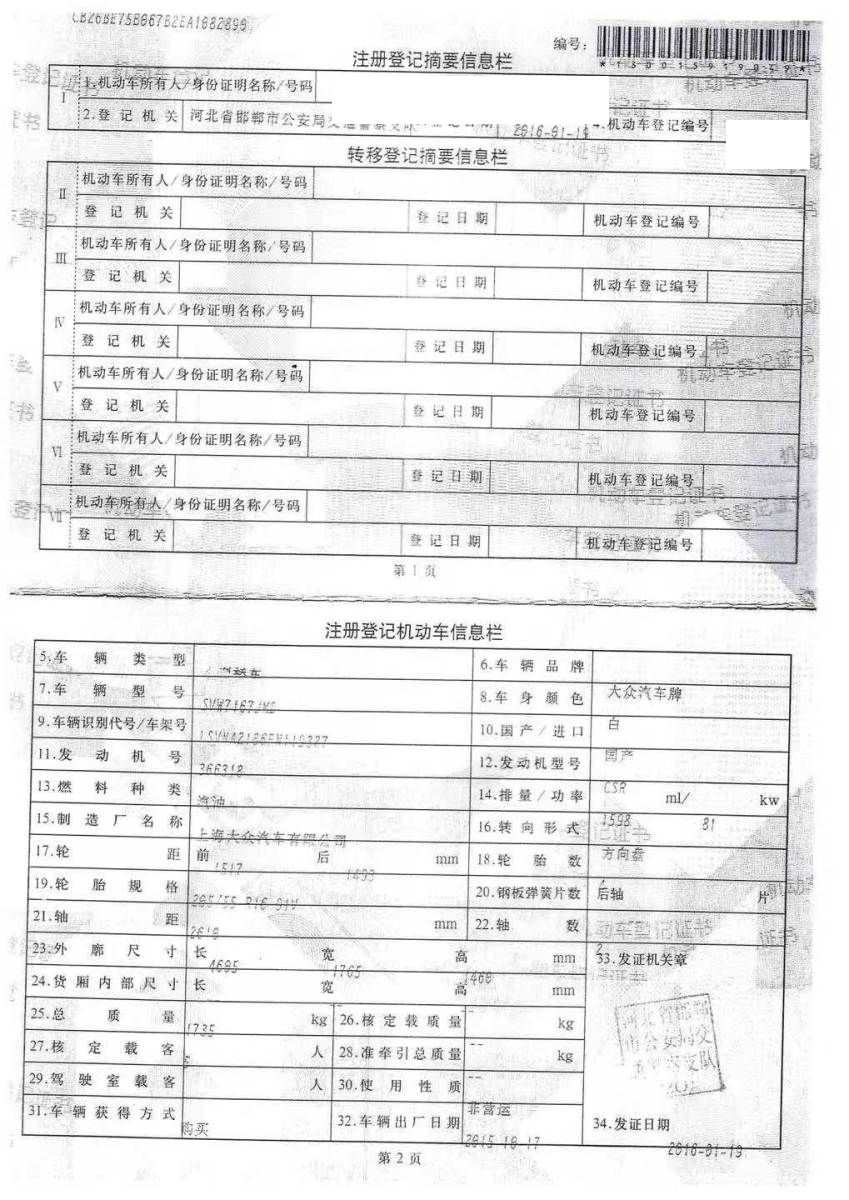 CB26BE75B667B2EA1682899
编号:
*130015919029*
注册登记摘要信息栏
Ⅰ 1.机动车所有人/身份证明名称/号码
2.登记机关 河北省邯郸市公安局交通警察支队 登记日期 2016-01-19 4.机动车登记编号
转移登记摘要信息栏
Ⅱ 机动车所有人/身份证明名称/号码
登记机关 登记日期 机动车登记编号
Ⅲ 机动车所有人/身份证明名称/号码
登记机关 登记日期 机动车登记编号
Ⅳ 机动车所有人/身份证明名称/号码
登记机关 登记日期 机动车登记编号
Ⅴ 机动车所有人/身份证明名称/号码
登记机关 登记日期 机动车登记编号
Ⅵ 机动车所有人/身份证明名称/号码
登记机关 登记日期 机动车登记编号
Ⅶ 机动车所有人/身份证明名称/号码
登记机关 登记日期 机动车登记编号
第1页
注册登记机动车信息栏
5.车辆类型 轿车 6.车辆品牌
7.车辆型号 8.车身颜色 大众汽车牌
9.车辆识别代号/车架号 10.国产/进口 白
11.发动机号 366318 12.发动机型号 国产
13.燃料种类 汽油 14.排量/功率 CSR ml/ kw
15.制造厂名称 上海大众汽车有限公司 16.转向形式 1598 81
17.轮距 前 1517 后 1493 mm 18.轮胎数 方向盘
19.轮胎规格 205/55 R16 91V 20.钢板弹簧片数 后轴 片
21.轴距 2610 mm 22.轴数
23.外廓尺寸 长 4605 宽 1765 高 1460 mm 2 33.发证机关章
24.货厢内部尺寸 长 宽 高 mm
25.总质量 1735 kg 26.核定载质量 -- kg
27.核定载客 5 人 28.准牵引总质量 -- kg
29.驾驶室载客 人 30.使用性质 --
31.车辆获得方式 购买 32.车辆出厂日期 非营运 34.发证日期
2015-10-17 2016-01-19
第2页